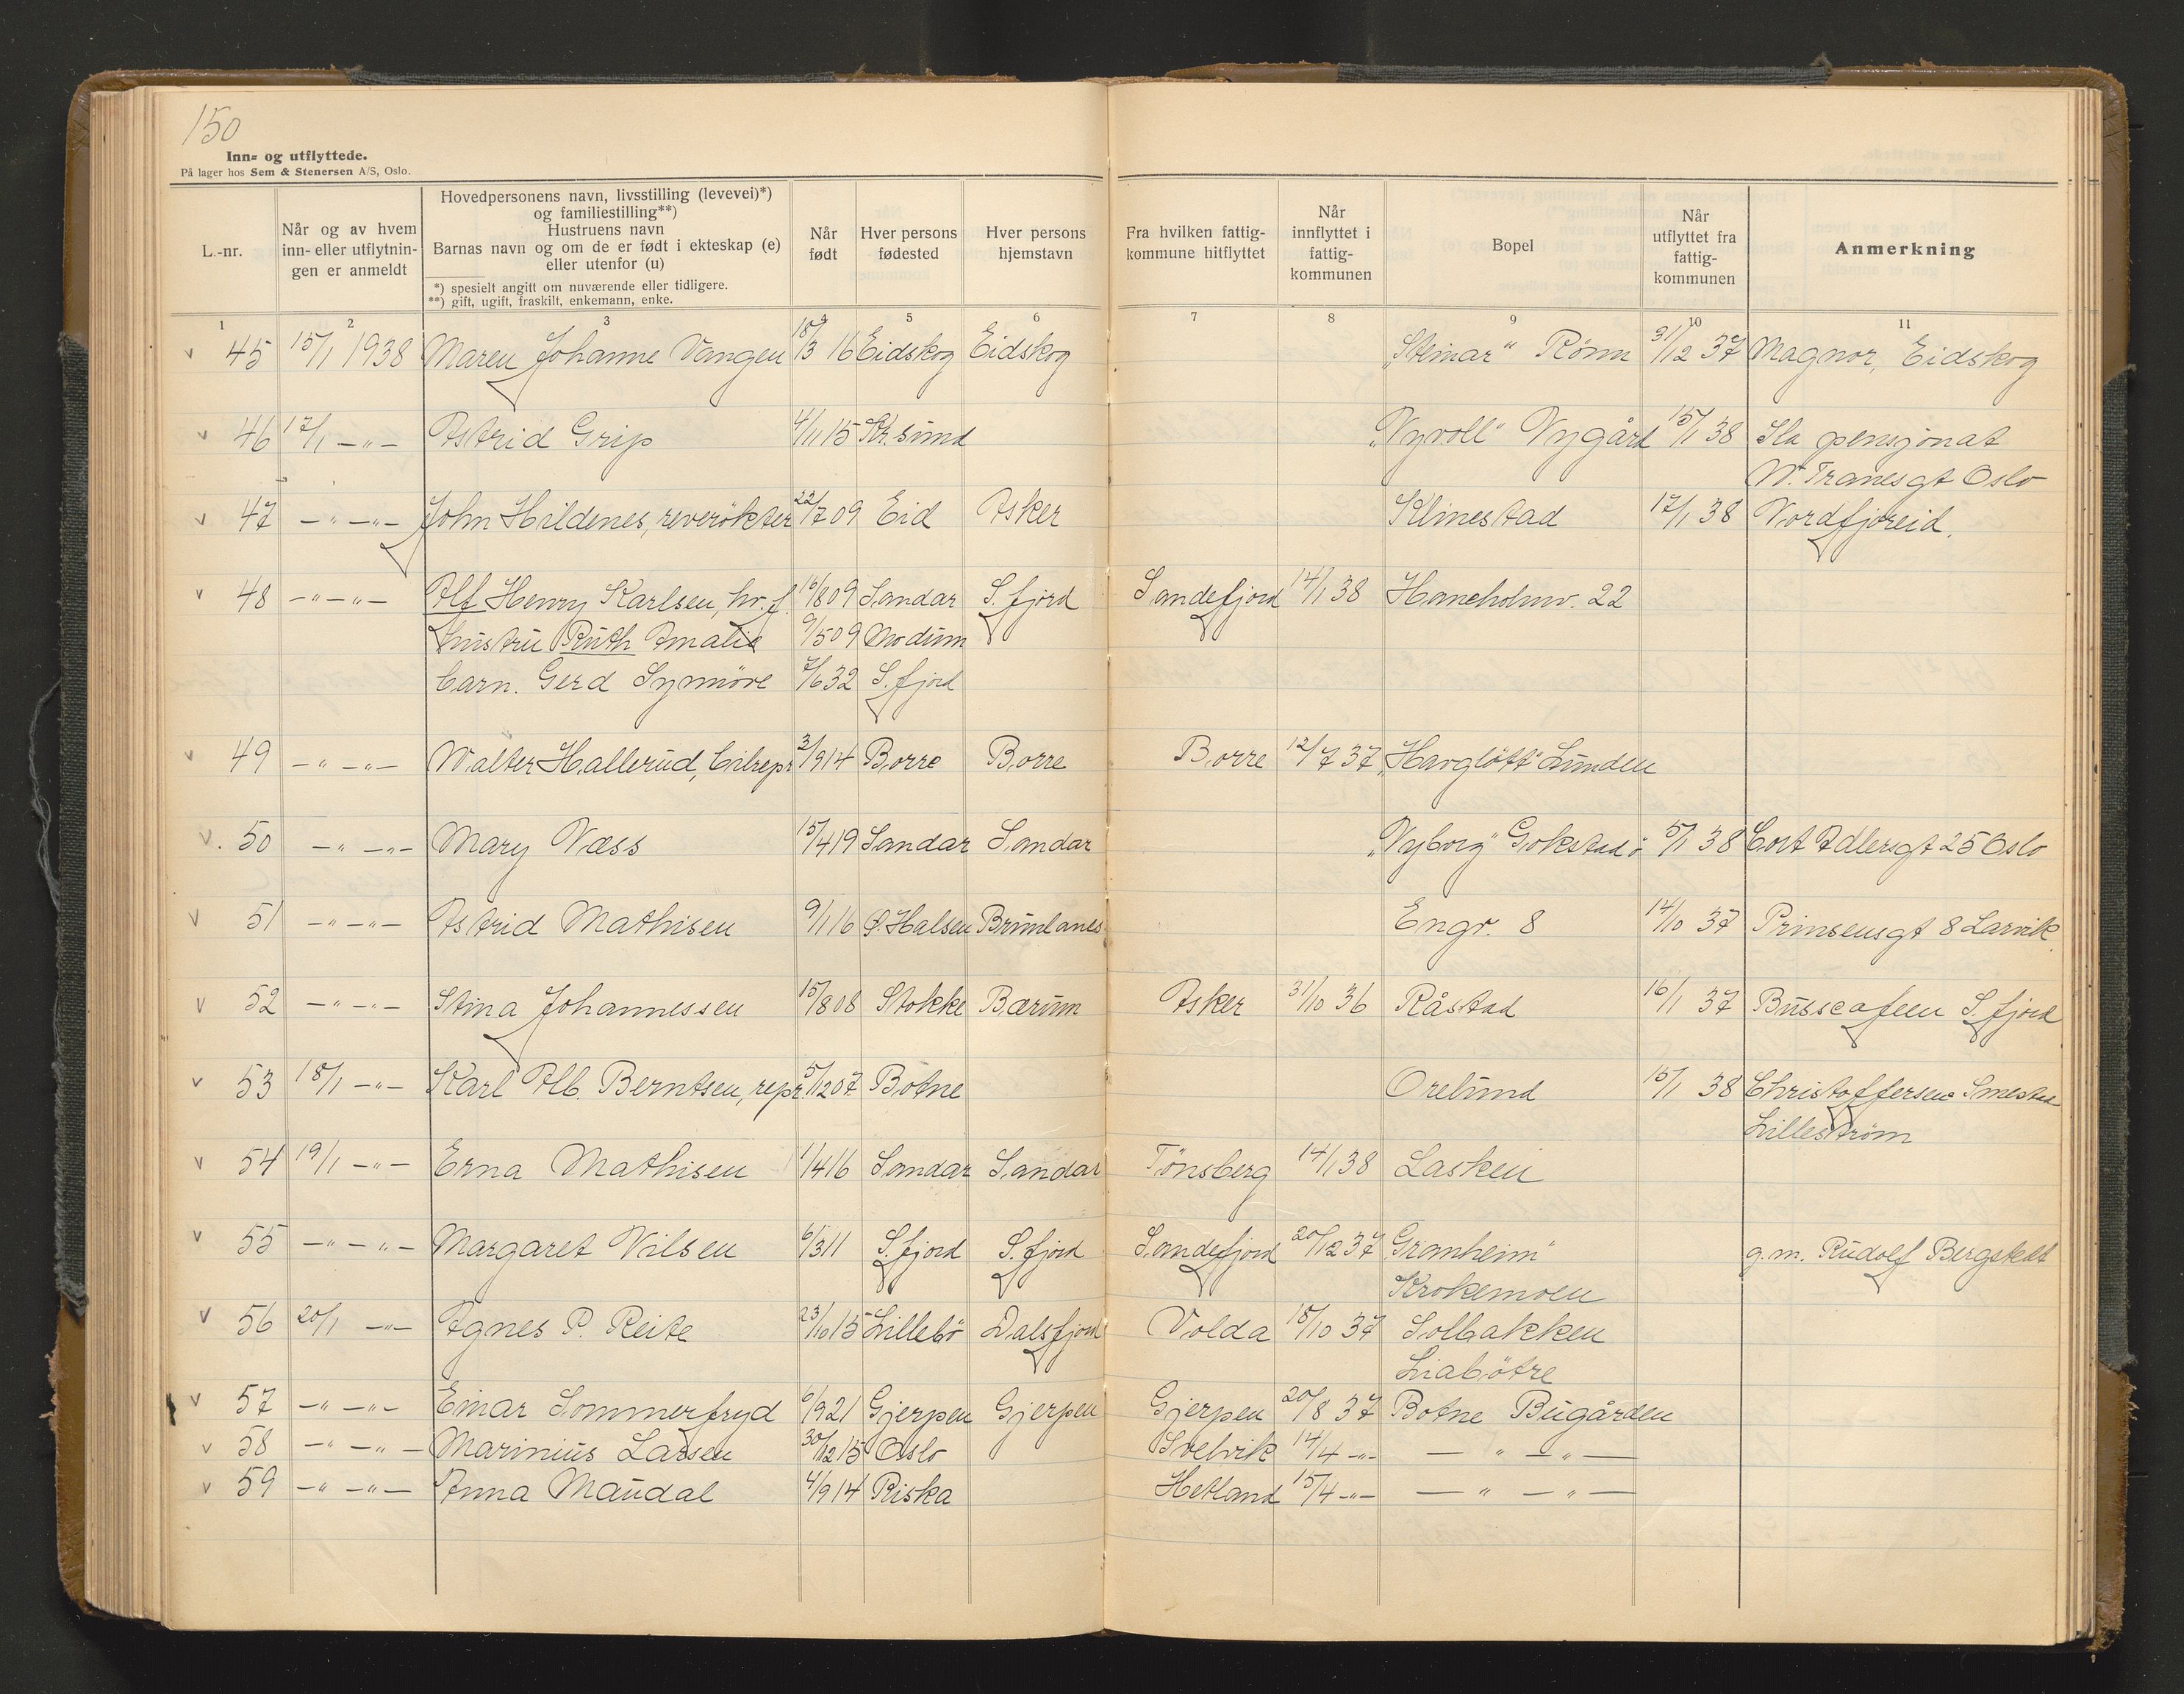 150
Inn- og utflyttede.
På lager hos Sem & Stenersen A/S, Oslo.
L.-nr.
Når og av hvem
inn- eller utflytnin-
gen er anmeldt
Hovedpersonens navn, livsstilling (levevei)*)
og familiestilling**)
Hustruens navn
Barnas navn og om de er født i ekteskap (e)
eller utenfor (u)
*) spesielt angitt om nuværende eller tidligere.
**) gift, ugift, fraskilt, enkemann, enke.
Når
født
Hver persons
fødested
Hver persons
hjemstavn
Fra hvilken fattig-
kommune hitflyttet
Når
innflyttet i
fattig-
kommunen
Bopel
Når
utflyttet fra
fattig-
kommunen
Anmerkning
1 2 3 4 5 6 7 8 9 10 11
v 45 15/1 1938 Maren Johanne Vangen 18/3 16 Eidskog Eidskog "Steinar" Rönn 31/12 37 Magnor, Eidskog
v 46 17/1 -"- Astrid Grip 4/11 15 Kr. sund "Nyvoll" Nygård 15/1 38 Ila pensjonat
W. Tranesgt Oslo
v 47 -"- -"- John Hildenes, reverökter 22/7 09 Eid Asker Klinestad 17/1 38 Nordfjoreid.
v 48 -"- -"- Alf Henry Karlsen, hv.f. 16/8 09 Sandar S.fjord Sandefjord 14/1 38 Haneholmv. 22
hustru Ruth Amalie 9/5 09 Modum
barn. Gerd Synnöve 7/6 32 S.fjord
v 49 -"- -"- Walter Hallerud, bilrepr 3/9 14 Borre Borre Borre 12/7 37 "Havglött" Lunden
v. 50 -"- -"- Mary Næss 15/4 19 Sandar Sandar "Nyborg" Gokstad ö 5/1 38 Cort Adlersgt 25 Oslo
v 51 -"- -"- Astrid Mathisen 9/1 16 Ø. Halsen Brunlanes Engv. 8 14/10 37 Prinsensgt 8 Larvik.
v 52 -"- -"- Stina Johannessen 15/8 08 Stokke Bærum Asker 31/10 36 Råstad 16/1 37 Busscafeen S.fjord
v 53 18/1 -"- Karl Alb. Berntsen, repr. 5/12 07 Botne Orelund 15/1 38 Christoffersen Smestad
Lilleström
v 54 19/1 -"- Erna Mathisen 1/4 16 Sandar Sandar Tönsberg 14/1 38 Lasken
v 55 -"- -"- Margaret Nilsen 6/3 11 S.fjord S.fjord Sandefjord 20/12 37 Granheim"
g.m. Rudolf Bergskdt
Krokemoen
v 56 20/1 -"- Agnes P. Reite 23/10 15 Lillebö Dalsfjord Volda 18/10 37 Solbakken
Liabötre
v 57 -"- -"- Einar Sommerfryd 6/9 21 Gjerpen Gjerpen Gjerpen 20/8 37 Botne Bugården
v 58 -"- -"- Marinius Larsen 30/12 15 Oslo Svelvik 14/4 -"- -"- -"-
v 59 -"- -"- Anna Maudal 4/9 14 Riska Hetland 15/4 -"- -"- -"-